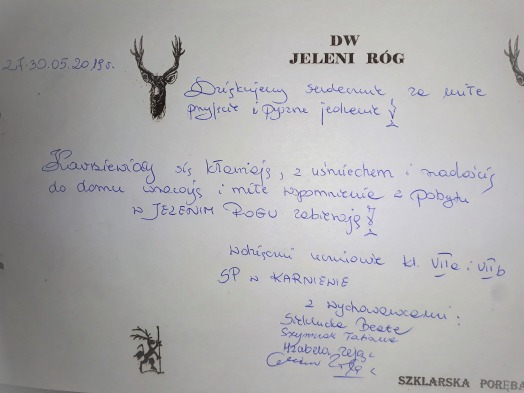 DW
JELENI RÓG
27-30.05.2019r.
Dziękujemy serdecznie za miłe
przyjęcie i pyszne jedzenie!
się kłaniają, z uśmiechem i radością
do domu wracają i miłe wspomnienie z pobytu
w JELENIM ROGU zabierają!
Wdzięczni uczniowie kl. VIIa i VIIb
SP w KARNIEWIE
z wychowawcami:
Beata
Szymczak Tatiana
Izabela Zając
SZKLARSKA PORĘBA